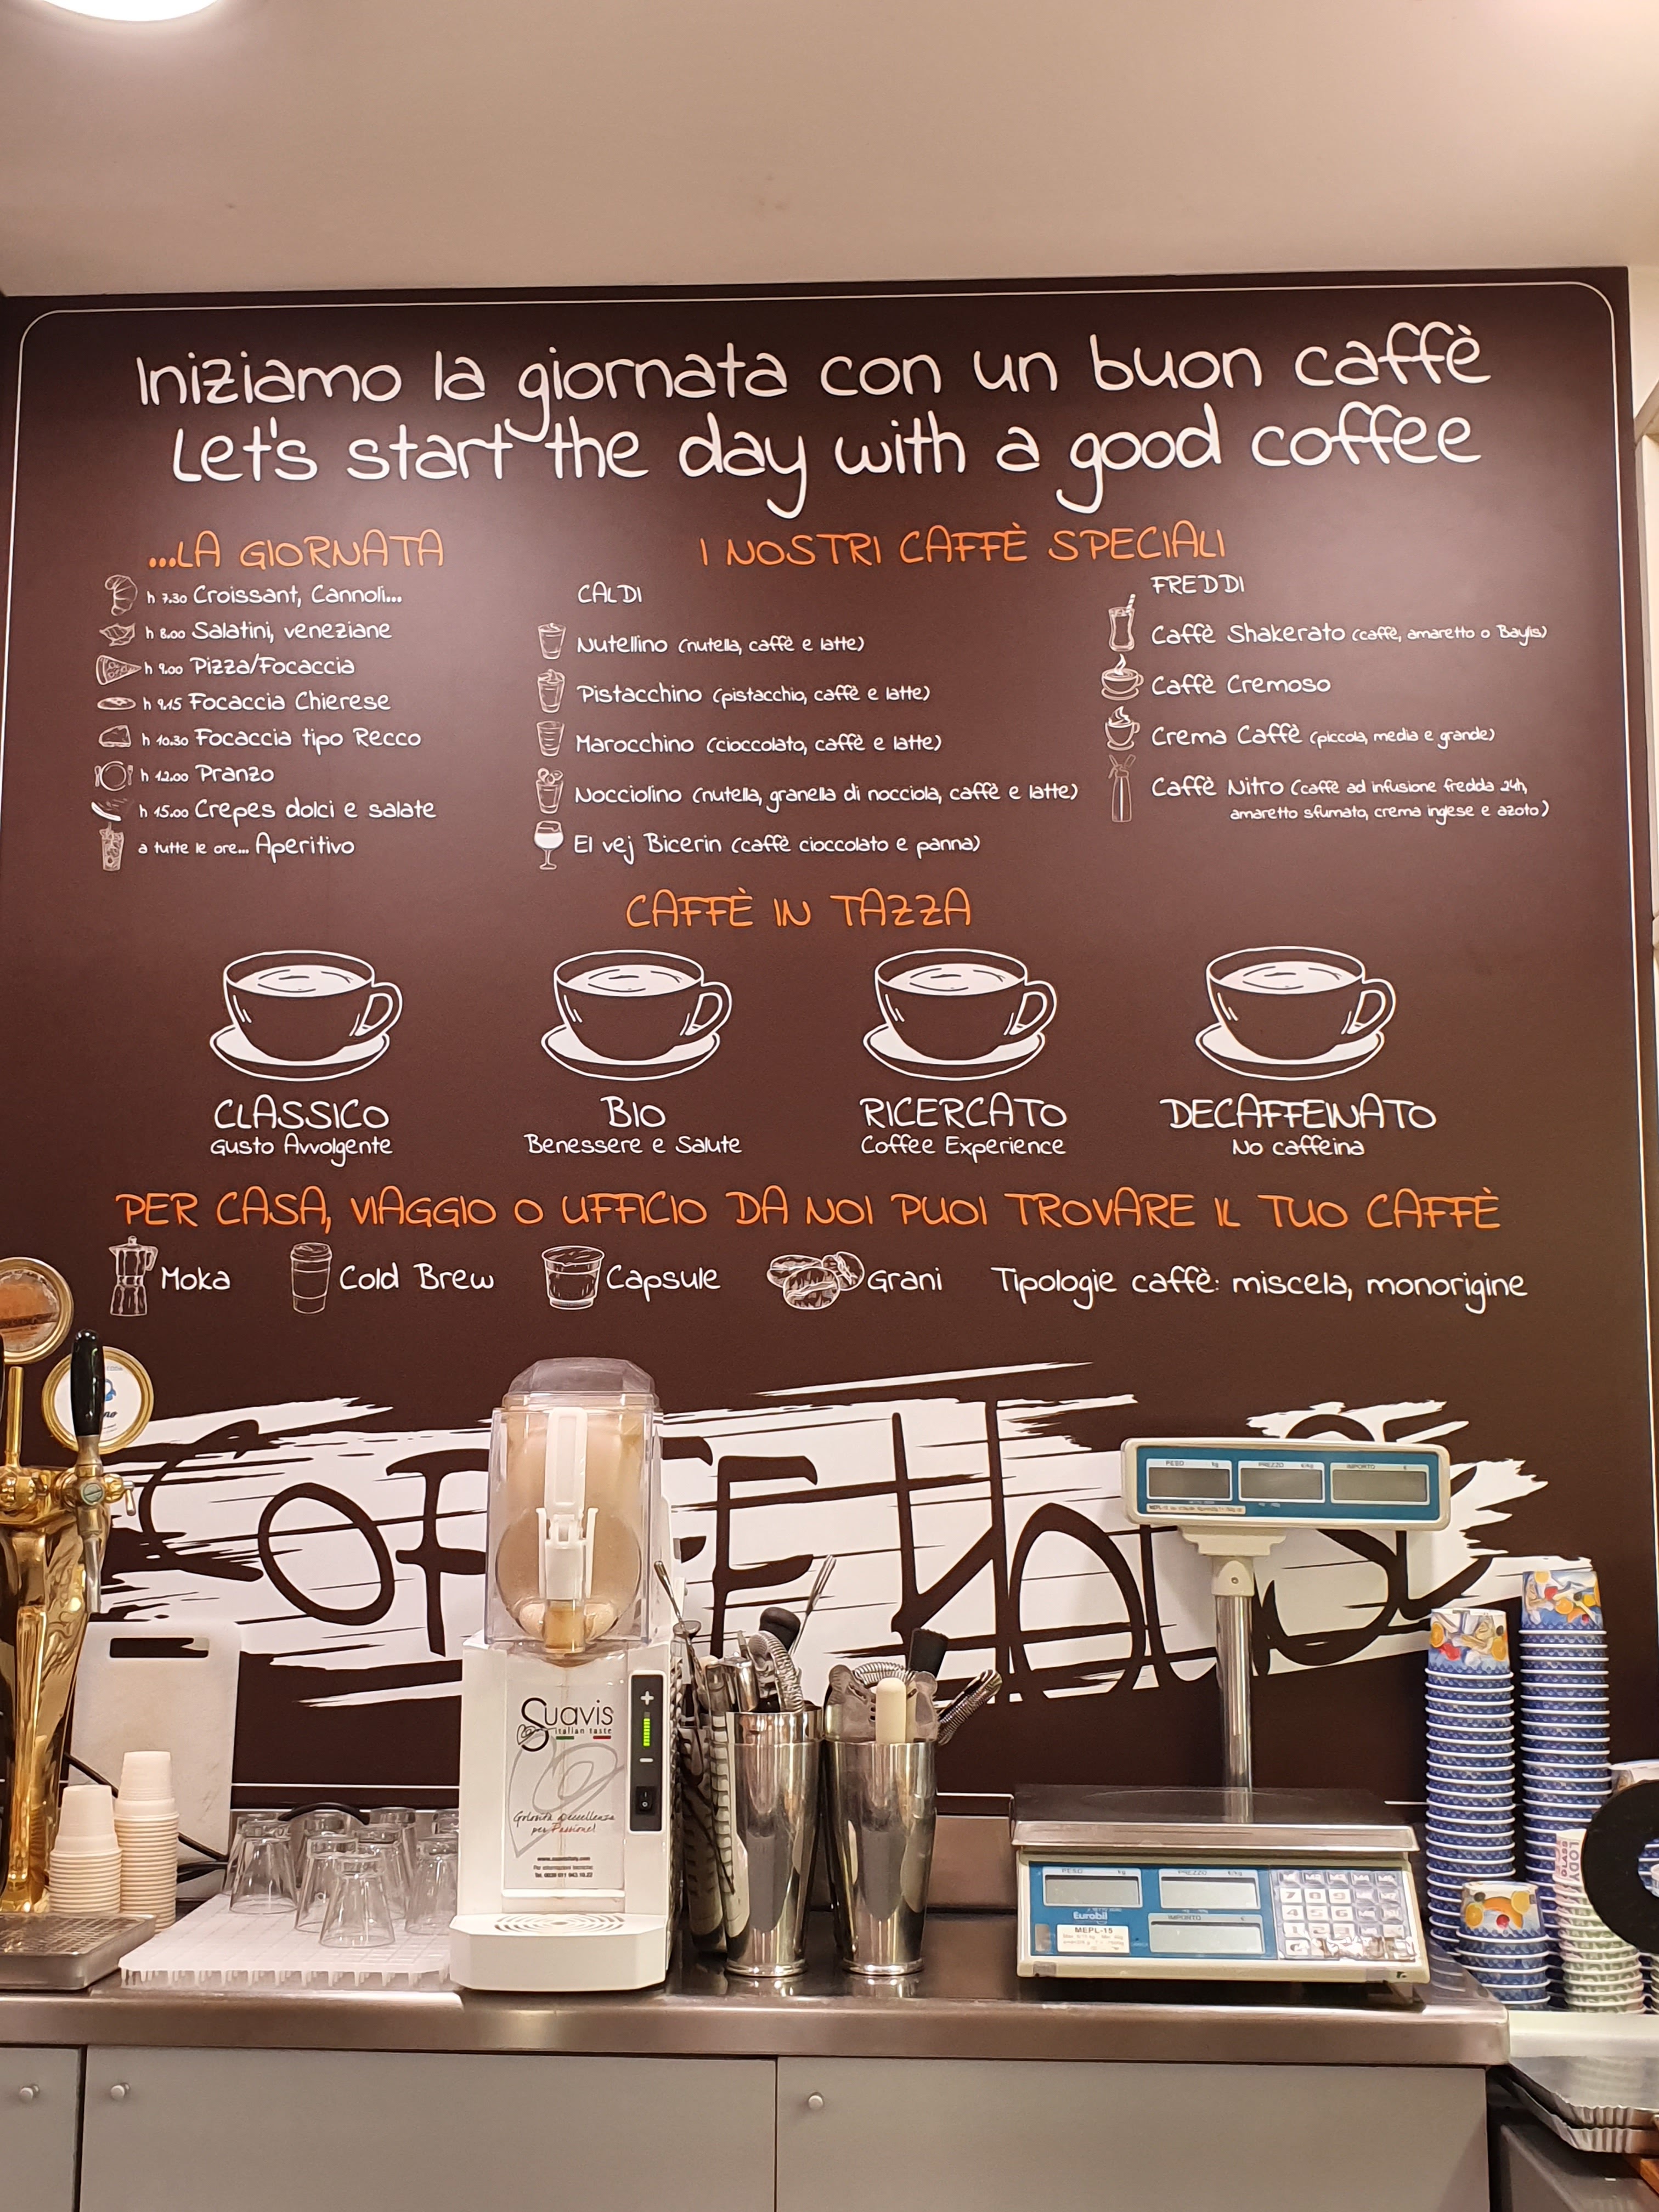 Iniziamo la giornata con un buon caffè
Let's start the day with a good coffee
...LA GIORNATA
h 7.30 Croissant, Cannoli...
h 8.00 Salatini, veneziane
h 9.00 Pizza/Focaccia
h 9.15 Focaccia Chierese
h 10.30 Focaccia tipo Recco
h 12.00 Pranzo
h 15.00 Crepes dolci e salate
a tutte le ore... Aperitivo
I NOSTRI CAFFÈ SPECIALI
CALDI
Nutellino (nutella, caffè e latte)
Pistacchino (pistacchio, caffè e latte)
Marocchino (cioccolato, caffè e latte)
Nocciolino (nutella, granella di nocciola, caffè e latte)
El vej Bicerin (caffè cioccolato e panna)
FREDDI
Caffè Shakerato (caffè, amaretto o Baylis)
Caffè Cremoso
Crema Caffè (piccola, media e grande)
Caffè Nitro (caffè ad infusione fredda 24h,
amaretto sfumato, crema inglese e azoto)
CAFFÈ IN TAZZA
CLASSICO
Gusto Avvolgente
BIO
Benessere e Salute
RICERCATO
Coffee Experience
DECAFFEINATO
No caffeina
PER CASA, VIAGGIO O UFFICIO DA NOI PUOI TROVARE IL TUO CAFFÈ
Moka
Cold Brew
Capsule
Grani
Tipologie caffè: miscela, monorigine
COFFEE HOUSE
PESO kg
PREZZO €/kg
IMPORTO €
Suavis
italian taste
Golosità d'eccellenza
per Passione!
PESO kg
PREZZO €/kg
Eurobil
IMPORTO €
MEPL-15
7 8 9
4 5 6
1 2 3